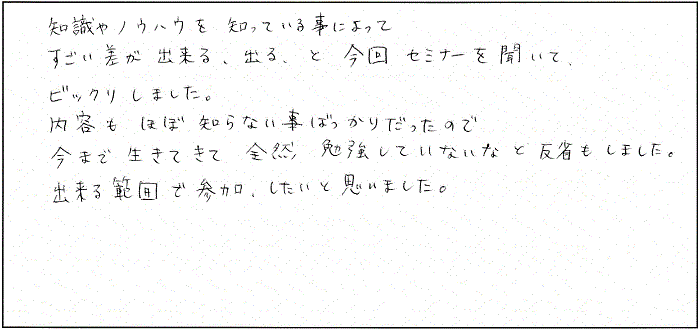 知識やノウハウを 知っている事によって
すごい差が 出来る、出る、と 今回 セミナーを聞いて、
ビックリしました。
内容も ほぼ 知らない事ばっかりだったので
今まで 生きてきて 全然 勉強していないなと 反省もしました。
出来る範囲で参加、したいと思いました。